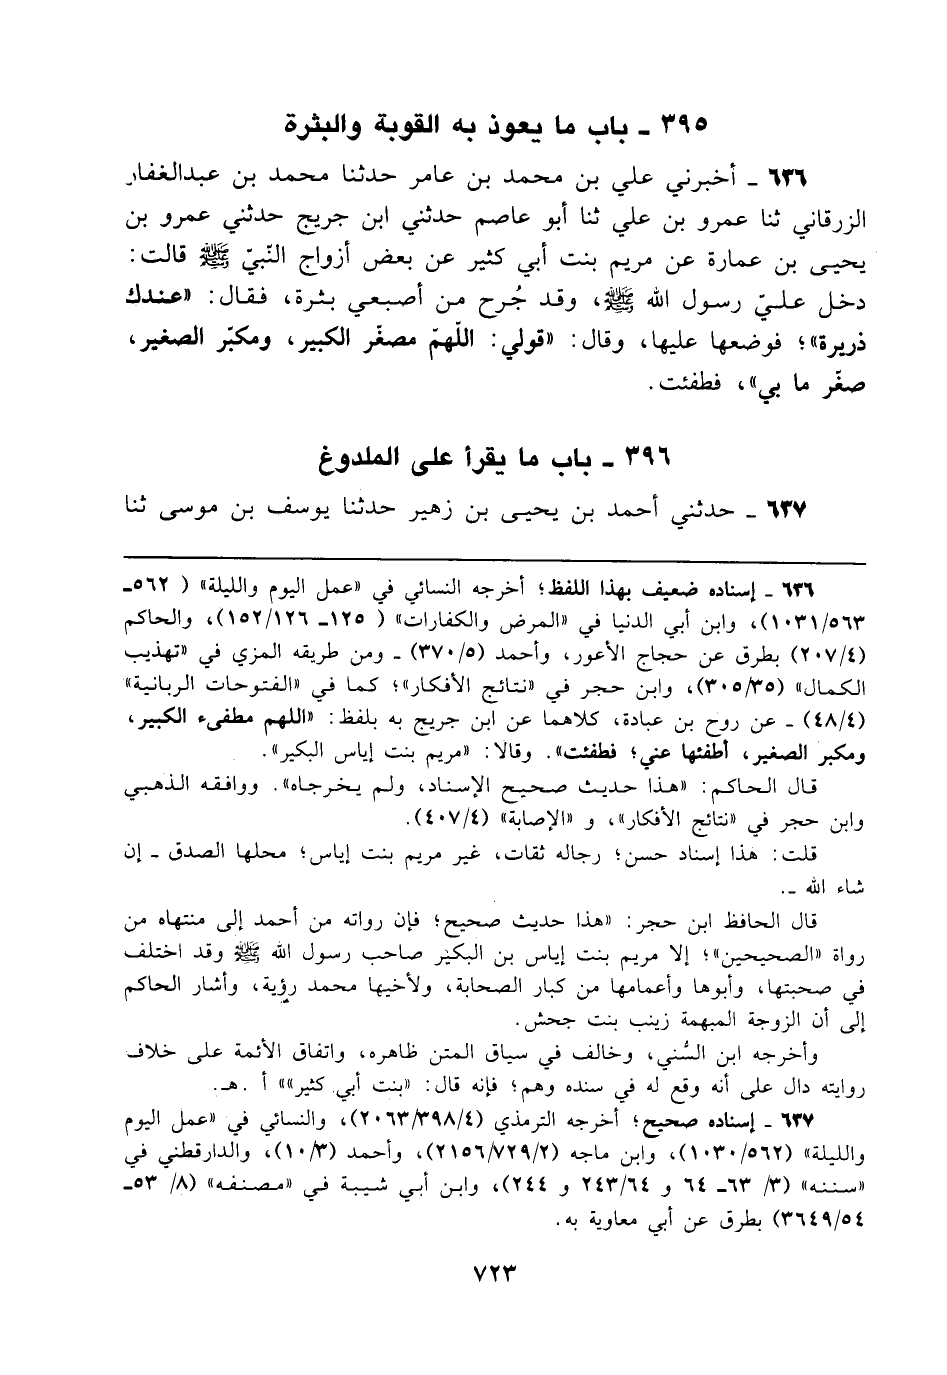 ٣٩٥ ـ باب ما يعوذ به القوبة والبثرة
٦٣٦ ـ أخبرني علي بن محمد بن عامر حدثنا محمد بن عبدالغفار
الزرقاني ثنا عمرو بن علي ثنا أبو عاصم حدثني ابن جريج حدثني عمرو بن
يحيى بن عمارة عن مريم بنت أبي كثير عن بعض أزواج النّبيّ ﷺ قالت:
دخل عليّ رسول الله ﷺ، وقد جُرح من أصبعي بثرة، فقال: «عندك
ذريرة»؛ فوضعها عليها، وقال: «قولي: اللّهمّ مصغّر الكبير، ومكبّر الصغير،
صغّر ما بي»، فطفئت.
٣٩٦ ـ باب ما يقرأ على الملدوغ
٦٣٧ ـ حدثني أحمد بن يحيى بن زهير حدثنا يوسف بن موسى ثنا
٦٣٦ ـ إسناده ضعيف بهذا اللفظ؛ أخرجه النسائي في «عمل اليوم والليلة» ( ٥٦٢ـ
١٠٣١/٥٦٣)، وابن أبي الدنيا في «المرض والكفارات» ( ١٢٥ـ ١٥٢/١٢٦)، والحاكم
(٢٠٧/٤) بطرق عن حجاج الأعور، وأحمد (٣٧٠/٥) ـ ومن طريقه المزي في «تهذيب
الكمال» (٣٠٥/٣٥)، وابن حجر في «نتائج الأفكار»؛ كما في «الفتوحات الربانية»
(٤٨/٤) ـ عن روح بن عبادة، كلاهما عن ابن جريج به بلفظ: «اللهم مطفىء الكبير،
ومكبر الصغير، أطفئها عني؛ فطفئت». وقالا: «مريم بنت إياس البكير».
قال الحاكم: «هذا حديث صحيح الإسناد، ولم يخرجاه». ووافقه الذهبي
وابن حجر في «نتائج الأفكار»، و «الإصابة» (٤٠٧/٤).
قلت: هذا إسناد حسن؛ رجاله ثقات، غير مريم بنت إياس؛ محلها الصدق ـ إن
شاء الله ـ.
قال الحافظ ابن حجر: «هذا حديث صحيح؛ فإن رواته من أحمد إلى منتهاه من
رواة «الصحيحين»؛ إلا مريم بنت إياس بن البكير صاحب رسول الله ﷺ وقد اختلف
في صحبتها، وأبوها وأعمامها من كبار الصحابة، ولأخيها محمد رؤية، وأشار الحاكم
إلى أن الزوجة المبهمة زينب بنت جحش.
وأخرجه ابن السُّني، وخالف في سياق المتن ظاهره، واتفاق الأئمة على خلاف
روايته دال على أنه وقع له في سنده وهم؛ فإنه قال: «بنت أبي كثير»» أ .هـ.
٦٣٧ ـ إسناده صحيح؛ أخرجه الترمذي (٢٠٦٣/٣٩٨/٤)، والنسائي في «عمل اليوم
والليلة» (١٠٣٠/٥٦٢)، وابن ماجه (٢١٥٦/٧٢٩/٢)، وأحمد (١٠/٣)، والدارقطني في
«سننه» (٣/ ٦٣ـ ٦٤ و ٢٤٣/٦٤ و ٢٤٤)، وابن أبي شيبة في «مصنفه» (٨/ ٥٣ـ
٣٦٤٩/٥٤) بطرق عن أبي معاوية به.
٧٢٣